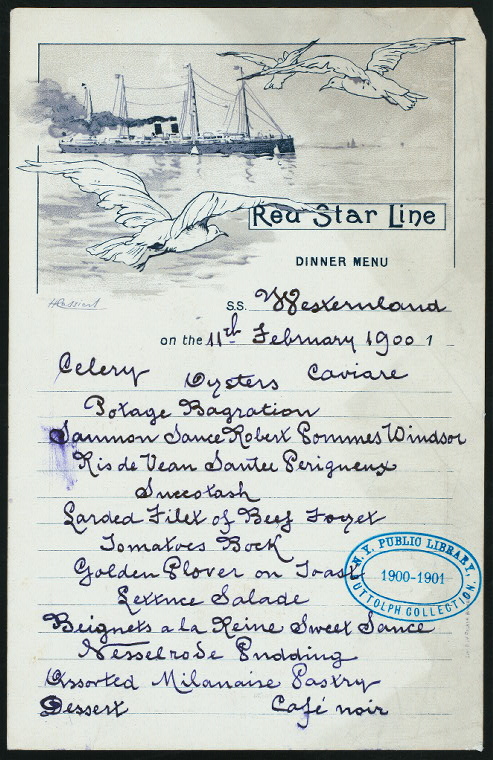 Red Star Line
DINNER MENU
S.S. Westernland
on the 11th February 1900 1
Celery Oysters Caviare
Potage Bagration
Saumon Sauce Robert Pommes Windsor
Ris de Veau Sautée Perigueux
Succotash
Larded Filet of Beef
Tomatoes Bock
Golden Plover on Toast
Lettuce Salade
Beignets a la Reine Sweet Sauce
Nesselrode Pudding
Assorted Milanaise Pastry
Dessert Café noir
N.Y. PUBLIC LIBRARY,
1900-1901
BUTTOLPH COLLECTION.